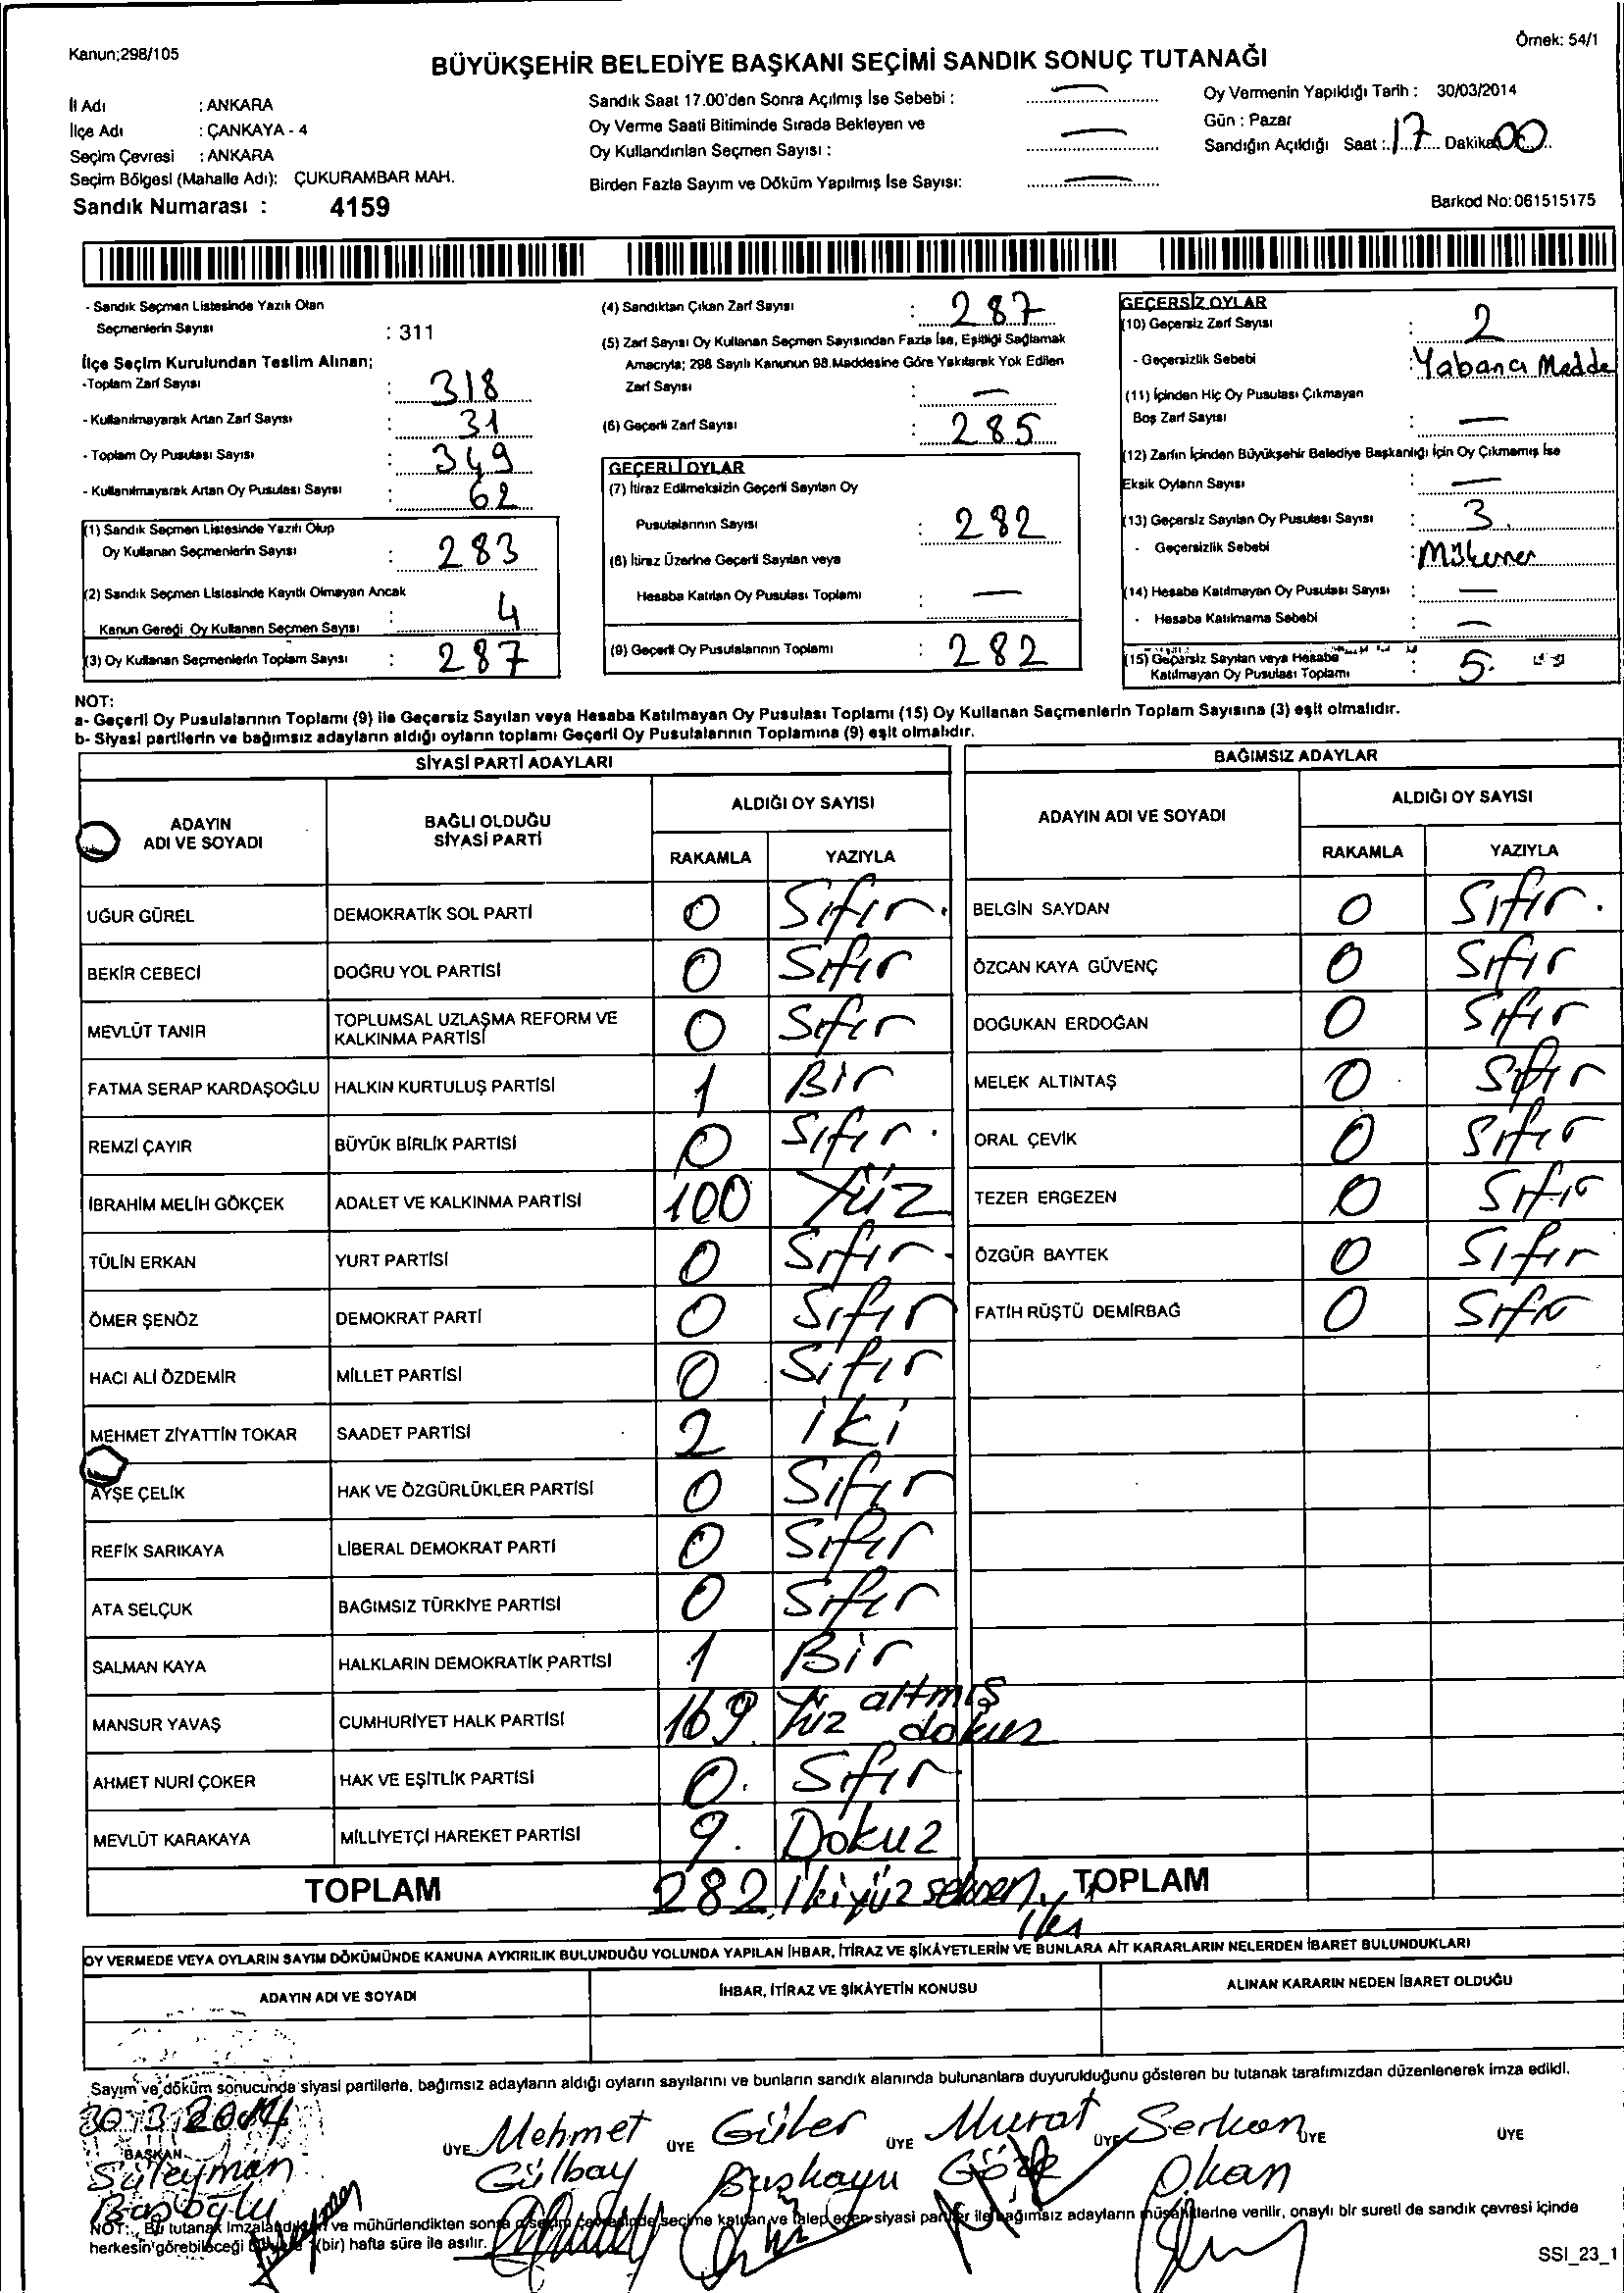 Kanun;298/105
Örnek: 54/1
BÜYÜKŞEHİR BELEDİYE BAŞKANI SEÇİMİ SANDIK SONUÇ TUTANAĞI
İl Adı : ANKARA
İlçe Adı : ÇANKAYA - 4
Seçim Çevresi : ANKARA
Seçim Bölgesi (Mahalle Adı): ÇUKURAMBAR MAH.
Sandık Numarası : 4159
Sandık Saat 17.00'den Sonra Açılmış İse Sebebi : —
Oy Verme Saati Bitiminde Sırada Bekleyen ve
Oy Kullandırılan Seçmen Sayısı : —
Birden Fazla Sayım ve Döküm Yapılmış İse Sayısı: —
Oy Vermenin Yapıldığı Tarih : 30/03/2014
Gün : Pazar
Sandığın Açıldığı Saat : 17 Dakika 00
Barkod No:061515175
- Sandık Seçmen Listesinde Yazılı Olan
Seçmenlerin Sayısı : 311
İlçe Seçim Kurulundan Teslim Alınan;
-Toplam Zarf Sayısı : 318
- Kullanılmayarak Artan Zarf Sayısı : 31
- Toplam Oy Pusulası Sayısı : 349
- Kullanılmayarak Artan Oy Pusulası Sayısı : 62
(1) Sandık Seçmen Listesinde Yazılı Olup
Oy Kullanan Seçmenlerin Sayısı : 283
(2) Sandık Seçmen Listesinde Kayıtlı Olmayan Ancak
Kanun Gereği Oy Kullanan Seçmen Sayısı : 4
(3) Oy Kullanan Seçmenlerin Toplam Sayısı : 287
(4) Sandıktan Çıkan Zarf Sayısı : 287
(5) Zarf Sayısı Oy Kullanan Seçmen Sayısından Fazla İse, Eşitliği Sağlamak
Amacıyla; 298 Sayılı Kanunun 98.Maddesine Göre Yakılarak Yok Edilen
Zarf Sayısı : —
(6) Geçerli Zarf Sayısı : 285
GEÇERLİ OYLAR
(7) İtiraz Edilmeksizin Geçerli Sayılan Oy
Pusulalarının Sayısı : 282
(8) İtiraz Üzerine Geçerli Sayılan veya
Hesaba Katılan Oy Pusulası Toplamı : —
(9) Geçerli Oy Pusulalarının Toplamı : 282
GEÇERSİZ OYLAR
(10) Geçersiz Zarf Sayısı : 2
- Geçersizlik Sebebi : Yabancı Madde
(11) İçinden Hiç Oy Pusulası Çıkmayan
Boş Zarf Sayısı : —
(12) Zarfın İçinden Büyükşehir Belediye Başkanlığı İçin Oy Çıkmamış İse
Eksik Oyların Sayısı : —
(13) Geçersiz Sayılan Oy Pusulası Sayısı : 3.
- Geçersizlik Sebebi : Mükerrer
(14) Hesaba Katılmayan Oy Pusulası Sayısı : —
- Hesaba Katılmama Sebebi : —
(15) Geçersiz Sayılan veya Hesaba
Katılmayan Oy Pusulası Toplamı : 5.
NOT:
a- Geçerli Oy Pusulalarının Toplamı (9) ile Geçersiz Sayılan veya Hesaba Katılmayan Oy Pusulası Toplamı (15) Oy Kullanan Seçmenlerin Toplam Sayısına (3) eşit olmalıdır.
b- Siyasi partilerin ve bağımsız adayların aldığı oyların toplamı Geçerli Oy Pusulalarının Toplamına (9) eşit olmalıdır.
SİYASİ PARTİ ADAYLARI
ADAYIN ADI VE SOYADI
BAĞLI OLDUĞU SİYASİ PARTİ
ALDIĞI OY SAYISI
RAKAMLA YAZIYLA
UĞUR GÜREL DEMOKRATİK SOL PARTİ 0 Sıfır.
BEKİR CEBECİ DOĞRU YOL PARTİSİ 0 Sıfır
MEVLÜT TANIR TOPLUMSAL UZLAŞMA REFORM VE KALKINMA PARTİSİ 0 Sıfır
FATMA SERAP KARDAŞOĞLU HALKIN KURTULUŞ PARTİSİ 1 Bir
REMZİ ÇAYIR BÜYÜK BİRLİK PARTİSİ 0 Sıfır.
İBRAHİM MELİH GÖKÇEK ADALET VE KALKINMA PARTİSİ 100 Yüz
TÜLİN ERKAN YURT PARTİSİ 0 Sıfır.
ÖMER ŞENÖZ DEMOKRAT PARTİ 0 Sıfır
HACI ALİ ÖZDEMİR MİLLET PARTİSİ 0 Sıfır
MEHMET ZİYATTİN TOKAR SAADET PARTİSİ 2 iki
AYŞE ÇELİK HAK VE ÖZGÜRLÜKLER PARTİSİ 0 Sıfır
REFİK SARIKAYA LİBERAL DEMOKRAT PARTİ 0 Sıfır
ATA SELÇUK BAĞIMSIZ TÜRKİYE PARTİSİ 0 Sıfır
SALMAN KAYA HALKLARIN DEMOKRATİK PARTİSİ 1 Bir
MANSUR YAVAŞ CUMHURİYET HALK PARTİSİ 169. Yüz altmış dokuz
AHMET NURİ ÇOKER HAK VE EŞİTLİK PARTİSİ 0. Sıfır
MEVLÜT KARAKAYA MİLLİYETÇİ HAREKET PARTİSİ 9. Dokuz
TOPLAM 282 İkiyüz seksen iki
BAĞIMSIZ ADAYLAR
ADAYIN ADI VE SOYADI
ALDIĞI OY SAYISI
RAKAMLA YAZIYLA
BELGİN SAYDAN 0 Sıfır.
ÖZCAN KAYA GÜVENÇ 0 Sıfır
DOĞUKAN ERDOĞAN 0 Sıfır
MELEK ALTINTAŞ 0 Sıfır
ORAL ÇEVİK 0 Sıfır
TEZER ERGEZEN 0 Sıfır
ÖZGÜR BAYTEK 0 Sıfır
FATİH RÜŞTÜ DEMİRBAĞ 0 Sıfır
TOPLAM
OY VERMEDE VEYA OYLARIN SAYIM DÖKÜMÜNDE KANUNA AYKIRILIK BULUNDUĞU YOLUNDA YAPILAN İHBAR, İTİRAZ VE ŞİKÂYETLERİN VE BUNLARA AİT KARARLARIN NELERDEN İBARET BULUNDUKLARI
ADAYIN ADI VE SOYADI
İHBAR, İTİRAZ VE ŞİKÂYETİN KONUSU
ALINAN KARARIN NEDEN İBARET OLDUĞU
Sayım ve döküm sonucunda siyasi partilerle, bağımsız adayların aldığı oyların sayılarını ve bunların sandık alanında bulunanlara duyurulduğunu gösteren bu tutanak tarafımızdan düzenlenerek imza edildi.
30.3.2014
BAŞKAN
Süleyman
ÜYE Mehmet Gülbay
ÜYE Güler
ÜYE Murat
ÜYE Serkan Okan
ÜYE
ÜYE
NOT: Bu tutanak İmzalandıktan ve mühürlendikten sonra o seçim çevresinde seçime katılan ve talep eden siyasi partiler ile bağımsız adayların müşahitlerine verilir, onaylı bir sureti de sandık çevresi içinde
herkesin görebileceği bir yere 1(bir) hafta süre ile asılır.
SSI_23_1